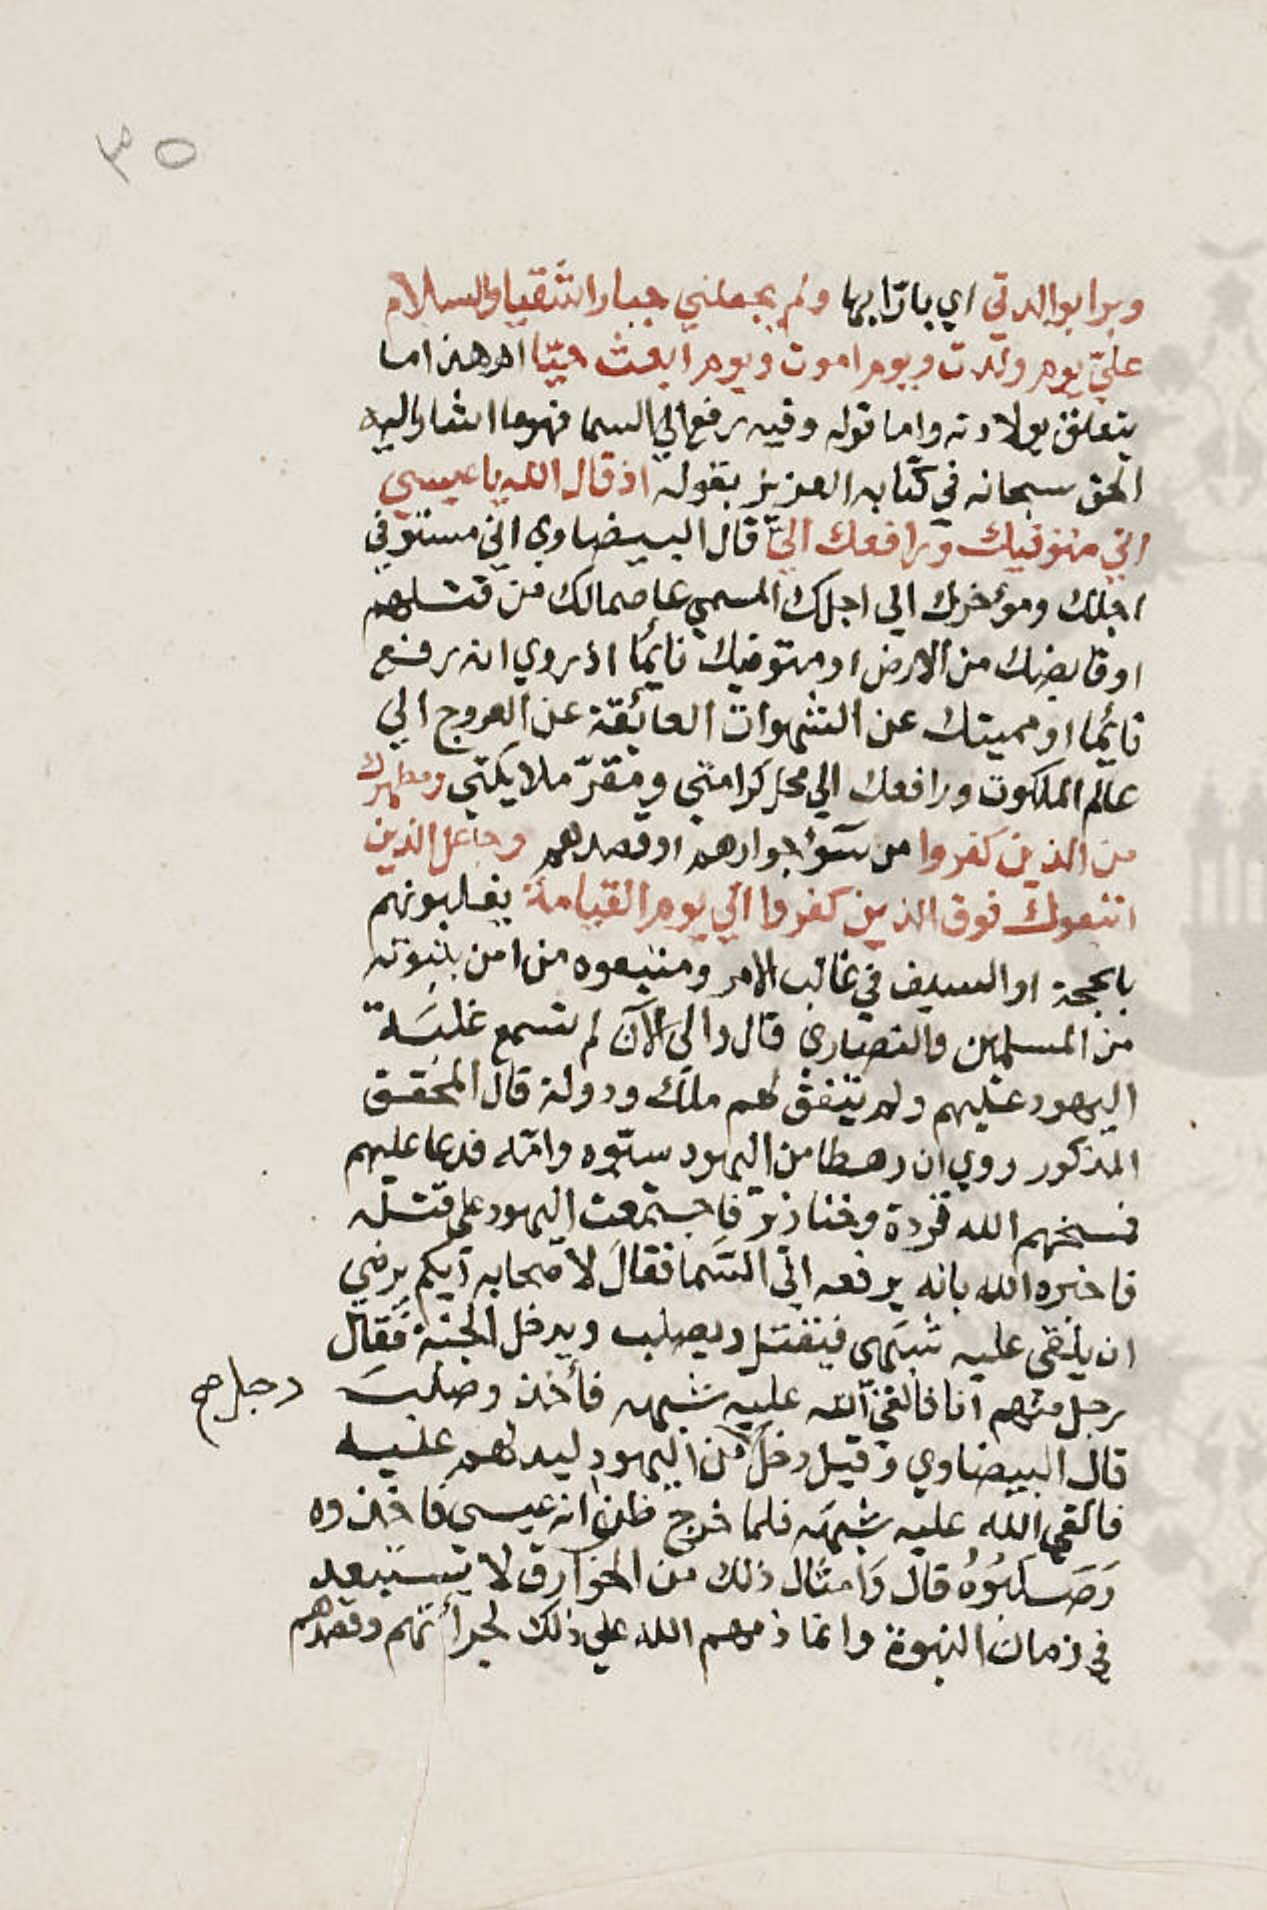 ٣٥
وبرا بوالدتي اي بارّا بها ولم يجعلني جبارا شقيا والسلام
عليّ يوم ولدت ويوم اموت ويوم ابعث حيّا اهـ هذا ما
يتعلق بولادته واما قوله وفيه رفع الي السما فهوما اشار اليه
الحق سبحانه في كتابه العزيز بقوله اذ قال الله يا عيسي
اني متوفيك ورافعك اليّ قال البيضاوي اني مستوفي
اجلك ومؤخرك الي اجلك المسمي عاصمالك من قتلهم
او قابضك من الارض او متوفيك نائما اذ روي انه رفع
نائما او مميتك عن الشهوات العائقة عن العروج الي
عالم الملكوت ورافعك الي محل كرامتي ومقرّ ملايكتي ومطهرك
من الذين كفروا من سوٓء جوارهم او قصدهم وجاعل الذين
اتبعوك فوق الذين كفروا الي يوم القيامة يغلبونهم
بالحجة او السيف في غالب الامر ومتبعوه من امن بنبوته
من المسلمين والنصاري قال والى الآن لم تسمع غلبة
اليهود عليهم ولم يتفق لهم ملك ودولة قال المحقق
المذكور روي ان رهطا من اليهود سبّوه وامّه فدعا عليهم
فمسخهم الله قردة وخنازير فاجتمعت اليهود على قتله
فاخبره الله بانه يرفعه الى السّما فقال لاصحابه ايكم يرضي
ان يلقى عليه شبهى فيقتل ويصلب ويدخل الجنة فقال
رجل منهم انا فالقى الله عليه شبهه فأخذ وصلب
رجل صح
قال البيضاوي وقيل دخل من اليهود ليدلهم عليه
فالقى الله عليه شبهه فلما خرج ظن انه عيسي فاخذوه
وَصَلبُوُهُ قال وَامثال ذلك من الخوارق لا تستبعد
في زمان النبوة وانما ذمهم الله علي ذلك لجرأتهم وقصدهم